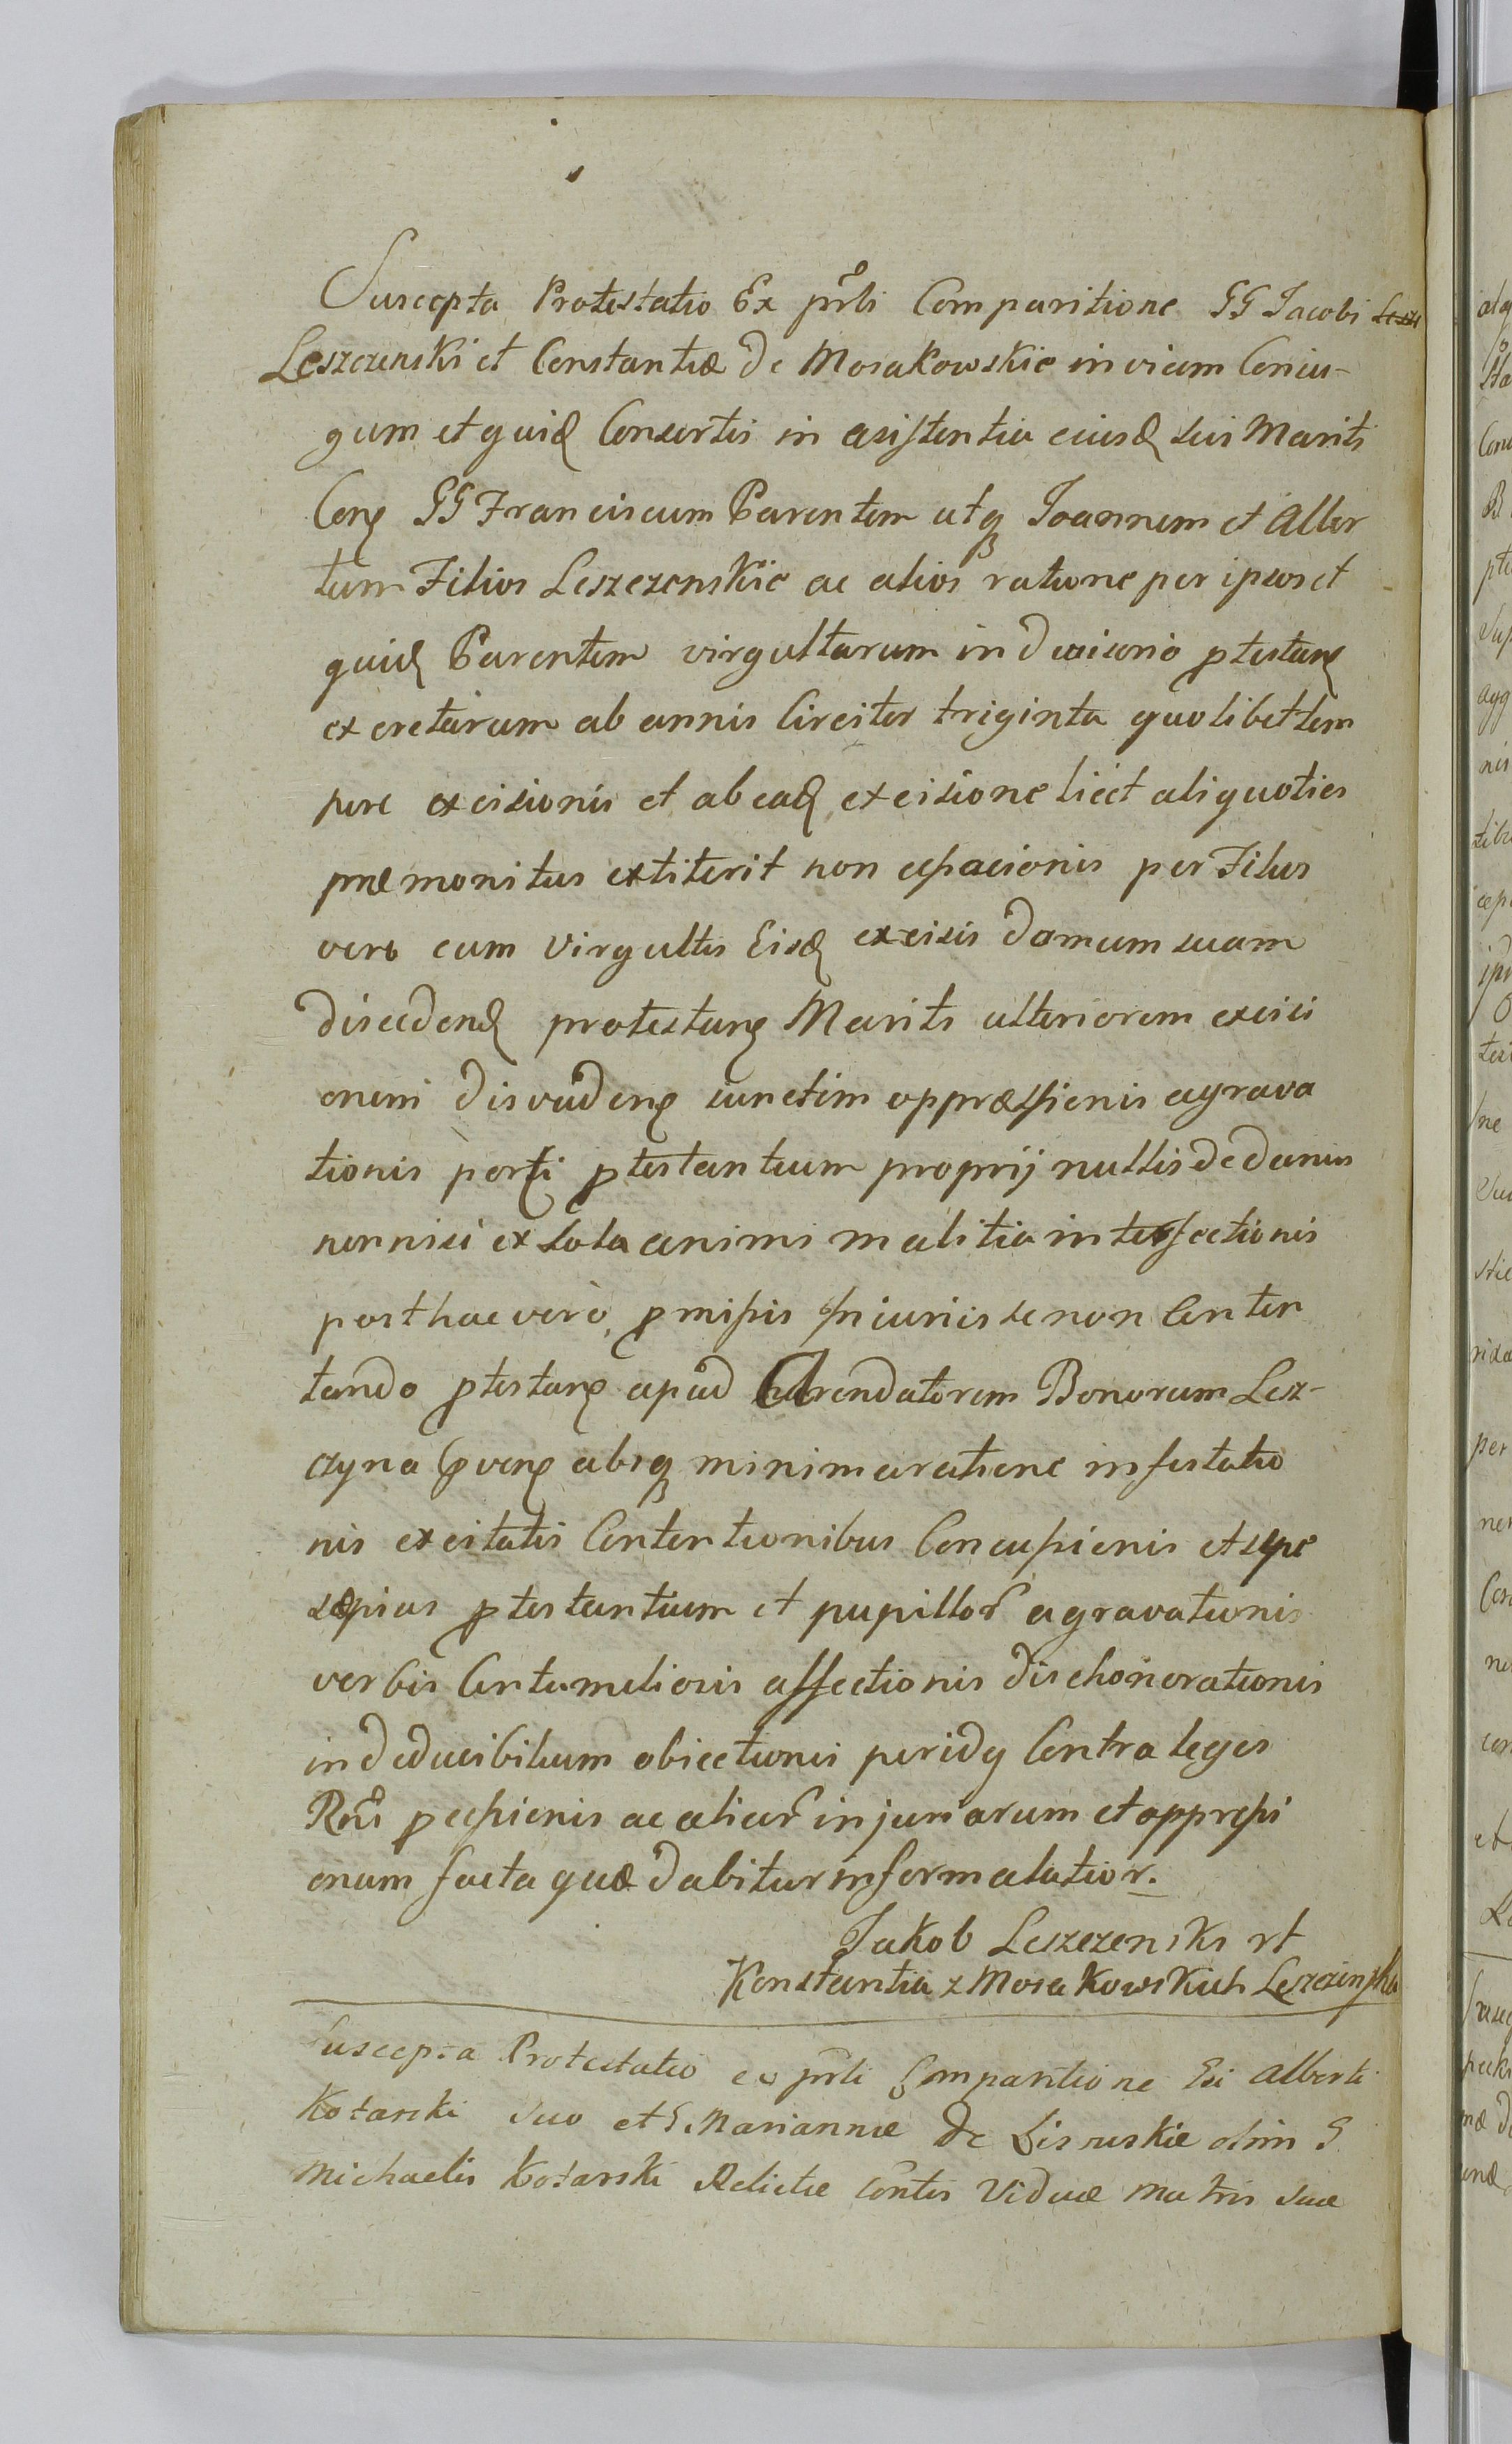 Suscepta Protestatio Ex prsti Comparitione GG Jacobi Lesz
Leszczenski et Constantiæ de Mosakowskie invicem Coniu-
gum et quid Consortis in asistentia eiusd sui Mariti
Con GG Franciscum Parentem atq Joannem et Alber
tum Filios Leszczenskie ac alios ratione per ipsos et
quid Parentem virgultarum in divisorio ptestan
excretarum ab annis Circiter triginta quolibet tem
pore excisionis et ab ead excisione licet aliquoties
præmonitus extiterit non cessacionis per Filios
vero cum Virgultis Eisd excisis domum suam
discedend protestan Mariti ulteriorem excisi
onem disvaden iunctim oppræssionis agrava
tionis porti ptestantium proprij nullis de danis
nonnisi ex sola animi malitia interfectionis
posthac verò pmissis Injuriis se non Conten
tando ptestan apud Arendatorem Bonorum Lesz-
czyna absq minima ratione infestatio
nis excitatis Contentionibus Concussionis et sepe
sæpius ptestantium et pupillor agravationis
verbis Contumeliosis affectionis dischonorationis
indeducibilium obiectionis peridq Contra leges
Rni pcessionis ac aliar injuriarum et oppressi
onum facta quæ dabitur informa latior.
Jakob Leszczenski rt
Konstantia z Mosakowskich Leszczinska
Suscepta Protestatio ex prsti Comparitione Gsi Alberti
Kotarski suo et G Mariannæ de Lisruskie olim G
Michaelis Kotarski Relictæ Contis Viduæ Matris suæ